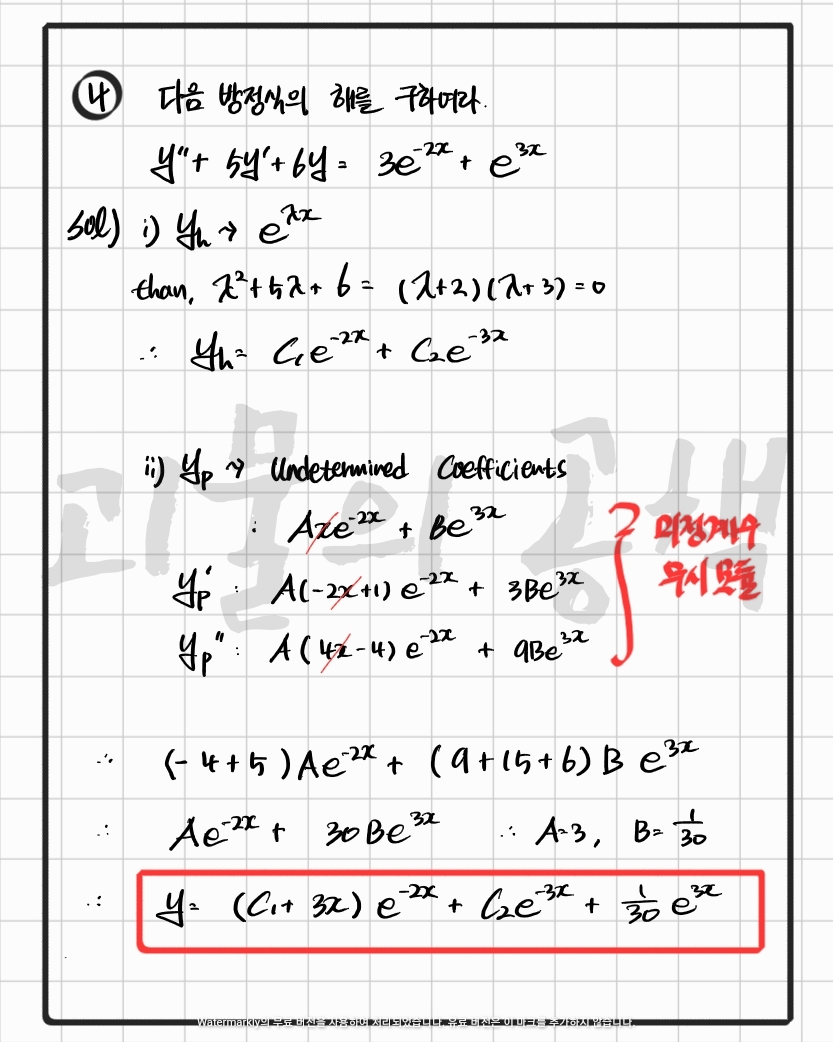 ④ 다음 방정식의 해를 구하여라.
y″ + 5y′ + 6y = 3e^{-2x} + e^{3x}
sol) i) y_h → e^{λx}
than, λ² + 5λ + 6 = (λ+2)(λ+3) = 0
∴ y_h = C₁e^{-2x} + C₂e^{-3x}
ii) y_p → Undetermined Coefficients
: Axe^{-2x} + Be^{3x}
y_p′ : A(-2x+1)e^{-2x} + 3Be^{3x}
y_p″ : A(4x-4)e^{-2x} + 9Be^{3x}
미정계수
무시 모듈
∴ (-4+5)Ae^{-2x} + (9+15+6)Be^{3x}
∴ Ae^{-2x} + 30Be^{3x} ∴ A=3, B=1/30
∴ y = (C₁+3x)e^{-2x} + C₂e^{-3x} + 1/30 e^{3x}
괴물의 공책
Watermarkly의 무료 버전을 사용하여 처리되었습니다. 유료 버전은 이 마크를 추가하지 않습니다.